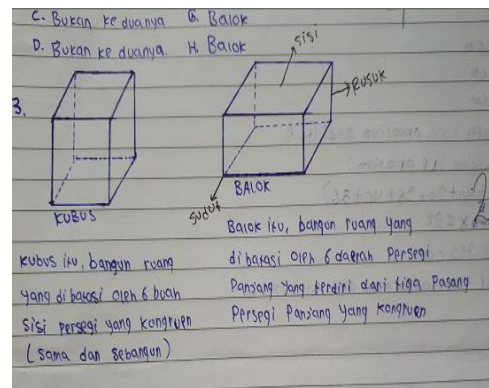 C. Bukan keduanya G. Balok
D. Bukan keduanya. H. Balok
3.
sisi
Rusuk
KUBUS
Sudut
BALOK
Kubus itu, bangun ruang
yang dibatasi oleh 6 buah
sisi persegi yang kongruen
(sama dan sebangun)
Balok itu, bangun ruang yang
dibatasi oleh 6 daerah Persegi
Panjang yang terdiri dari tiga Pasang
Persegi Panjang yang kongruen